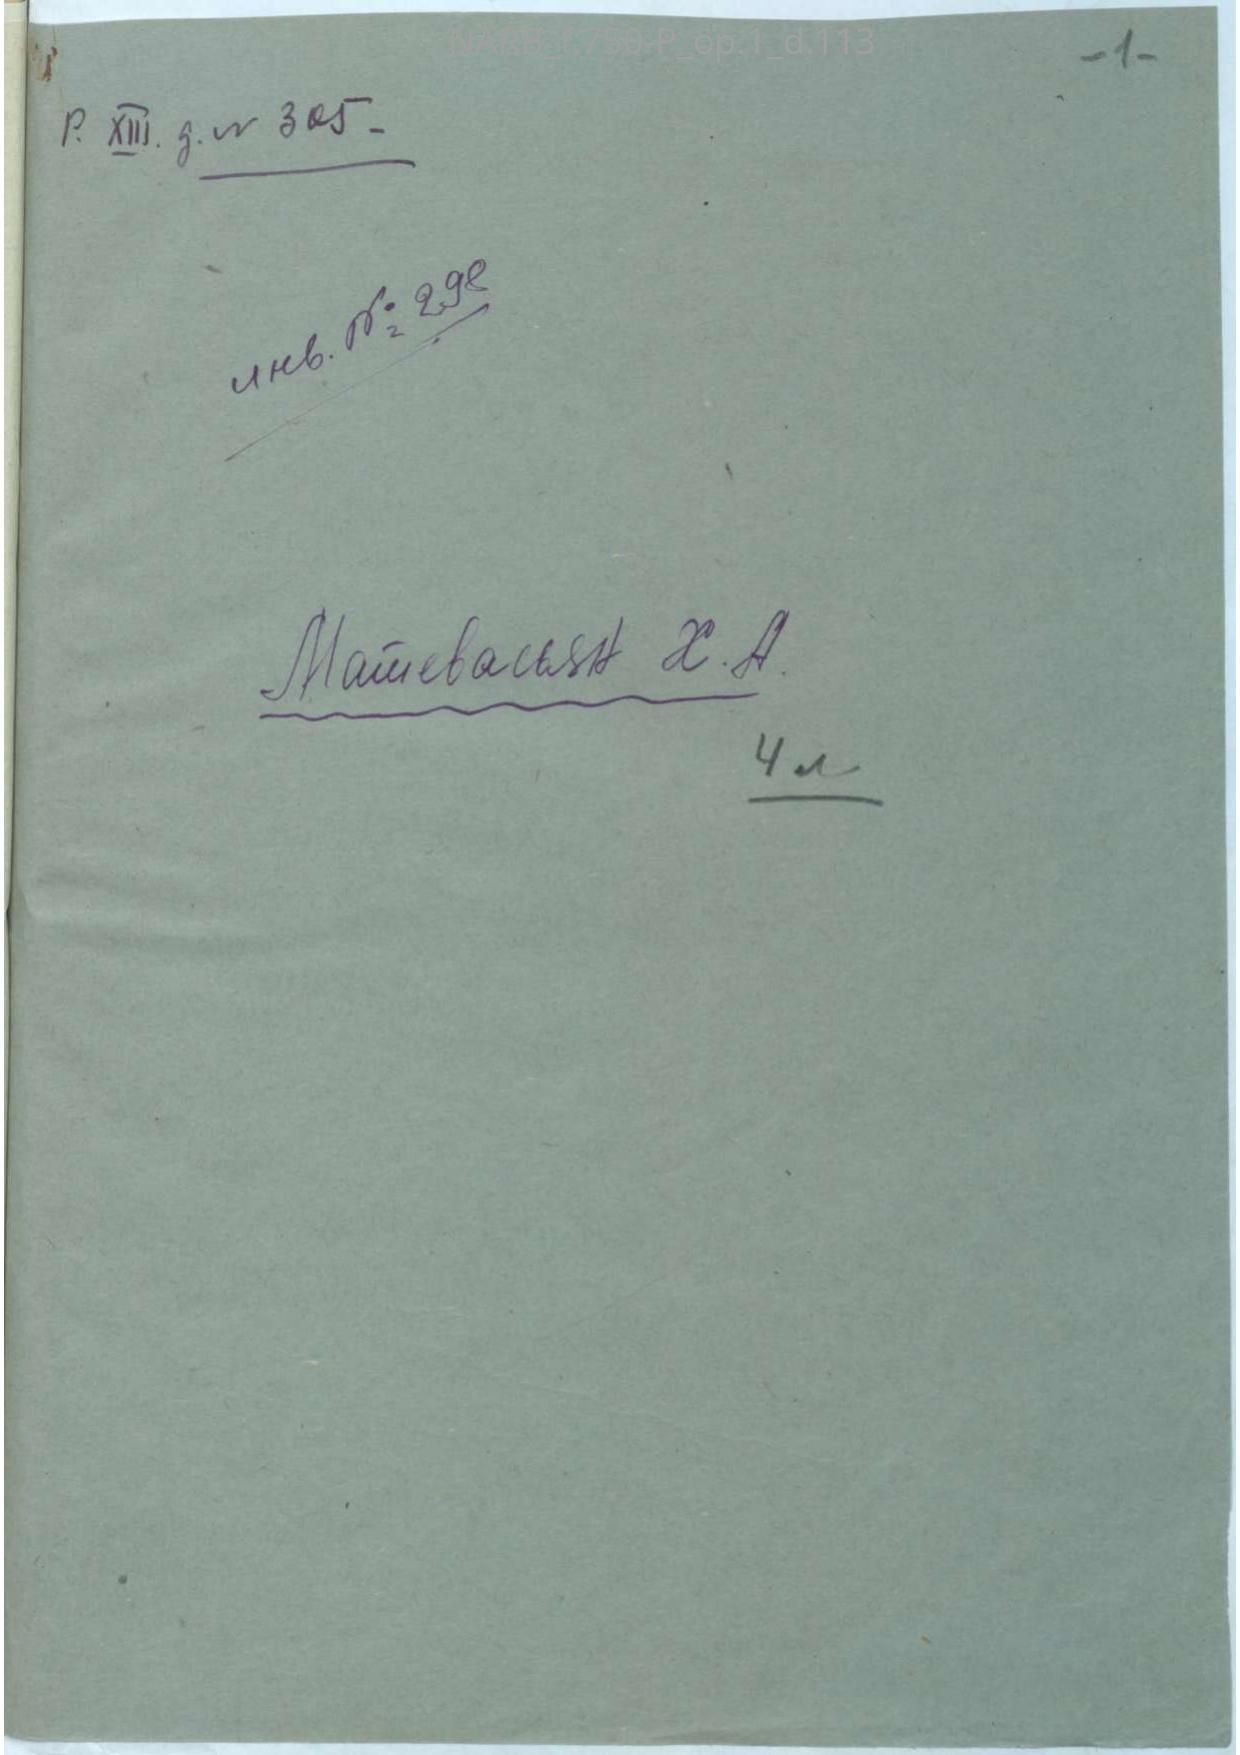 NARB_f.750-P_op.1_d.113
-1-
Р. XIII. д. № 305-
инв. № 298
Матевасьян Х. А.
4 л